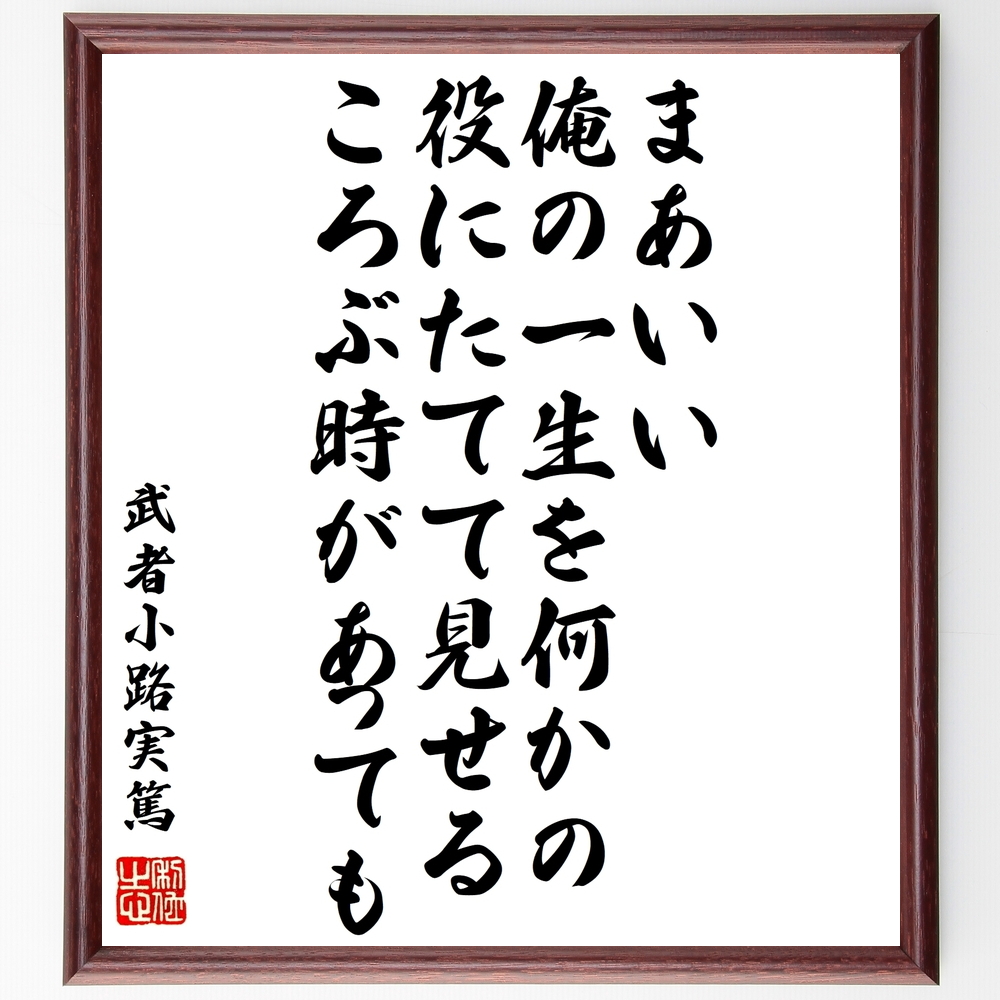 まあいい
俺の一生を何かの
役にたてて見せる
ころぶ時があっても
武者小路実篤